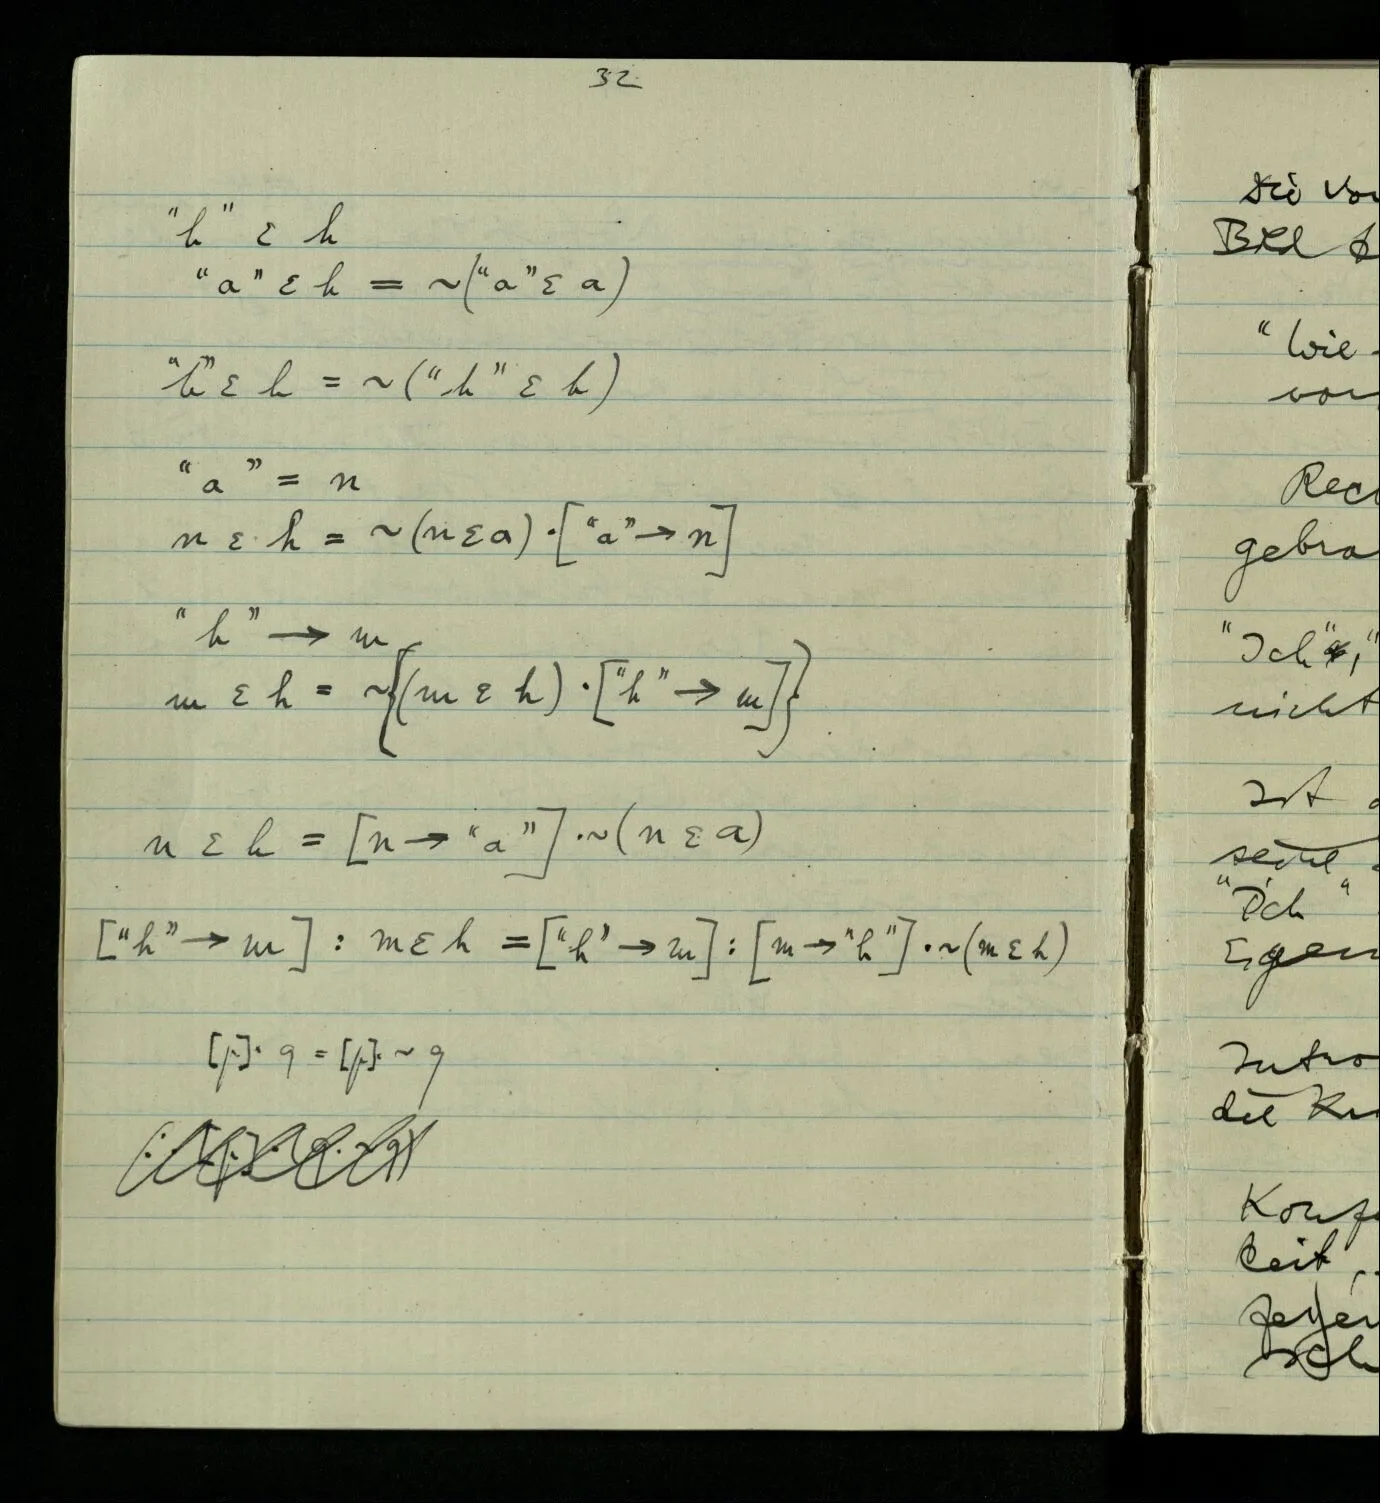 32
"h" ε h
"a" ε h = ~("a" ε a)
"h" ε h = ~("h" ε h)
"a" = n
n ε h = ~(n ε a) · ["a" → n]
"h" → m
m ε h = ~{(m ε h) · ["h" → m]}
n ε h = [n → "a"] · ~(n ε a)
["h" → m] : m ε h = ["h" → m] : [m → "h"] · ~(m ε h)
[p]· q = [p]· ~ q
Die Vor
Bild
"Wie
vor
Rec
gebra
"Ich", "
nicht
Ist
seine
"Ich"
Eigen
Intro
die
Konf
keit